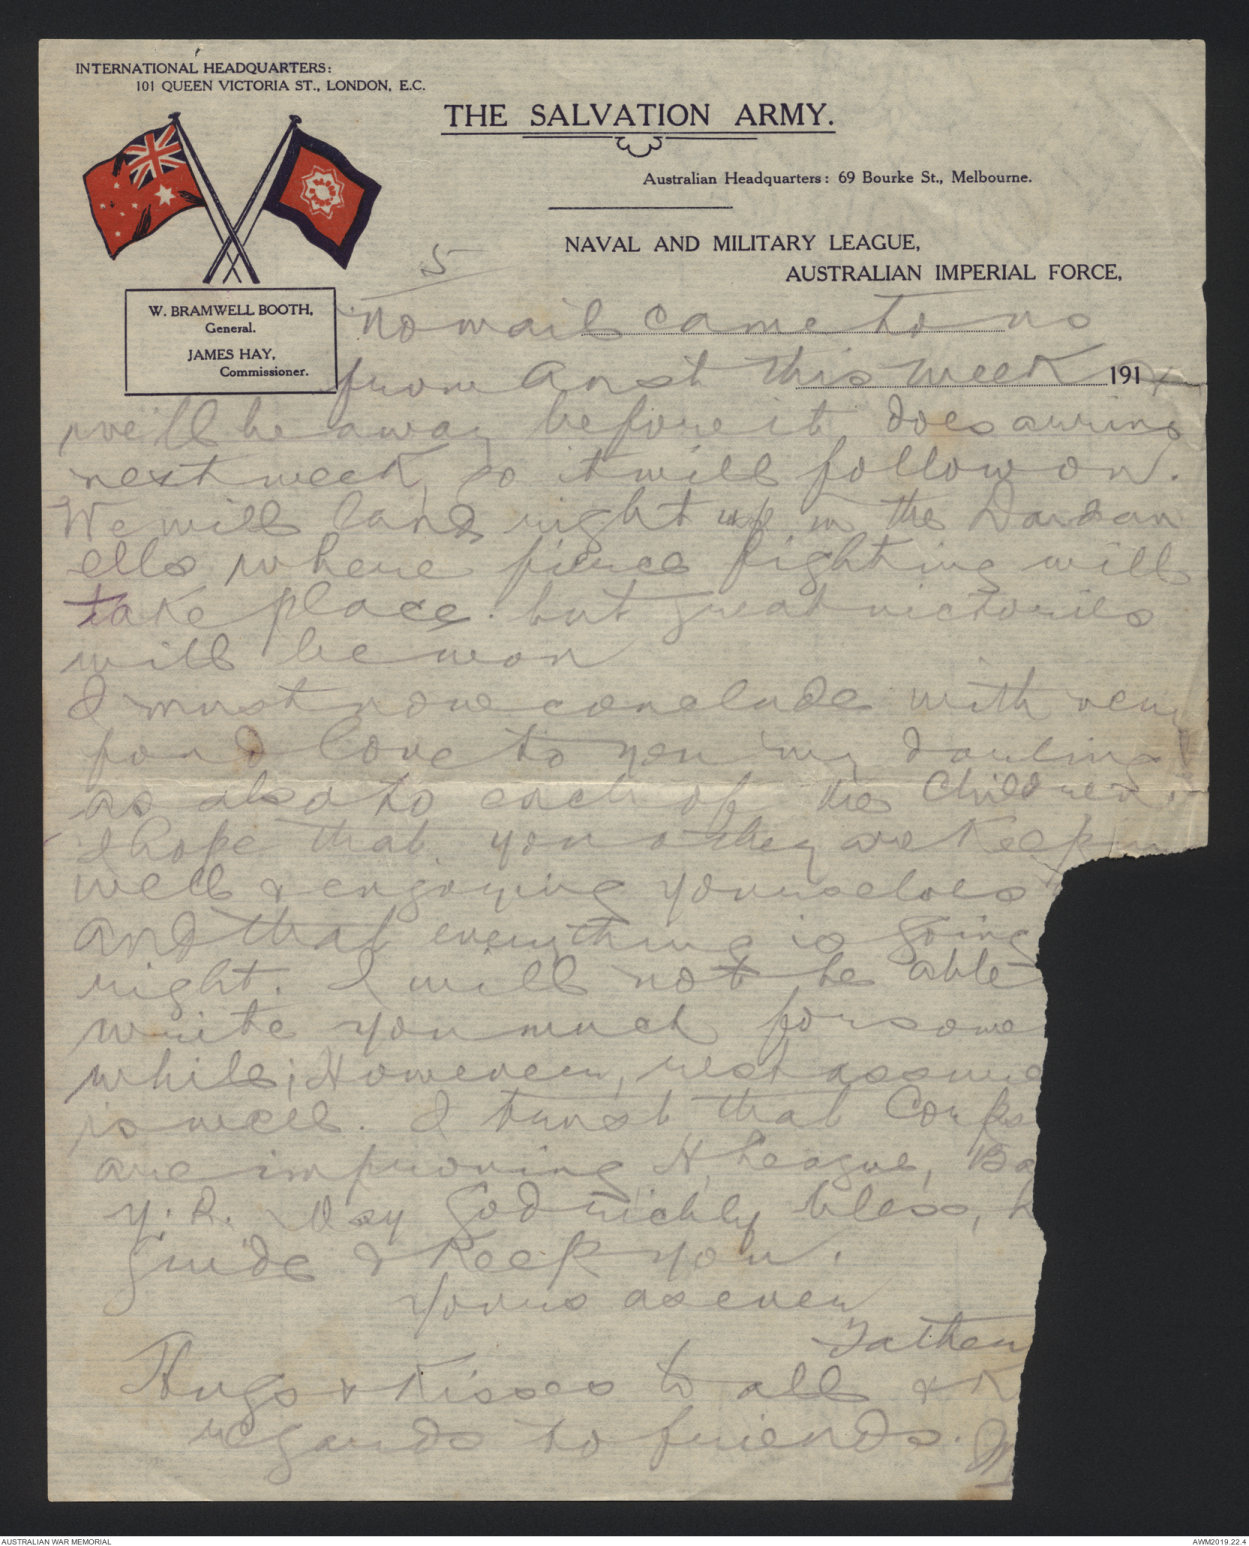 INTERNATIONAL HEADQUARTERS:
101 QUEEN VICTORIA ST., LONDON, E.C.
THE SALVATION ARMY.
Australian Headquarters: 69 Bourke St., Melbourne.
NAVAL AND MILITARY LEAGUE,
AUSTRALIAN IMPERIAL FORCE,
W. BRAMWELL BOOTH,
General.
JAMES HAY,
Commissioner.
5
No mail came to us
from Aust this week
191
we'll be away before it does arrive
next week, so it will follow on.
We will land right up in the Dardan
ells where fierce fighting will
take place. but great victories
will be won
I must now conclude with very
fond love to you my darling
as also to each of the children.
I hope that you & they are keeping
well & engoying yourselves
and that everything is going
right. I will not be able
write you much for some
while; However, rest assure
is well. I trust that Corps
are improving, H League, Ba
Y.P. May God richly bless,
guide & keep you.
Yours as ever
Father
Hugs & Kisses to all & K
regards to friends.
AUSTRALIAN WAR MEMORIAL
AWM2019.22.4